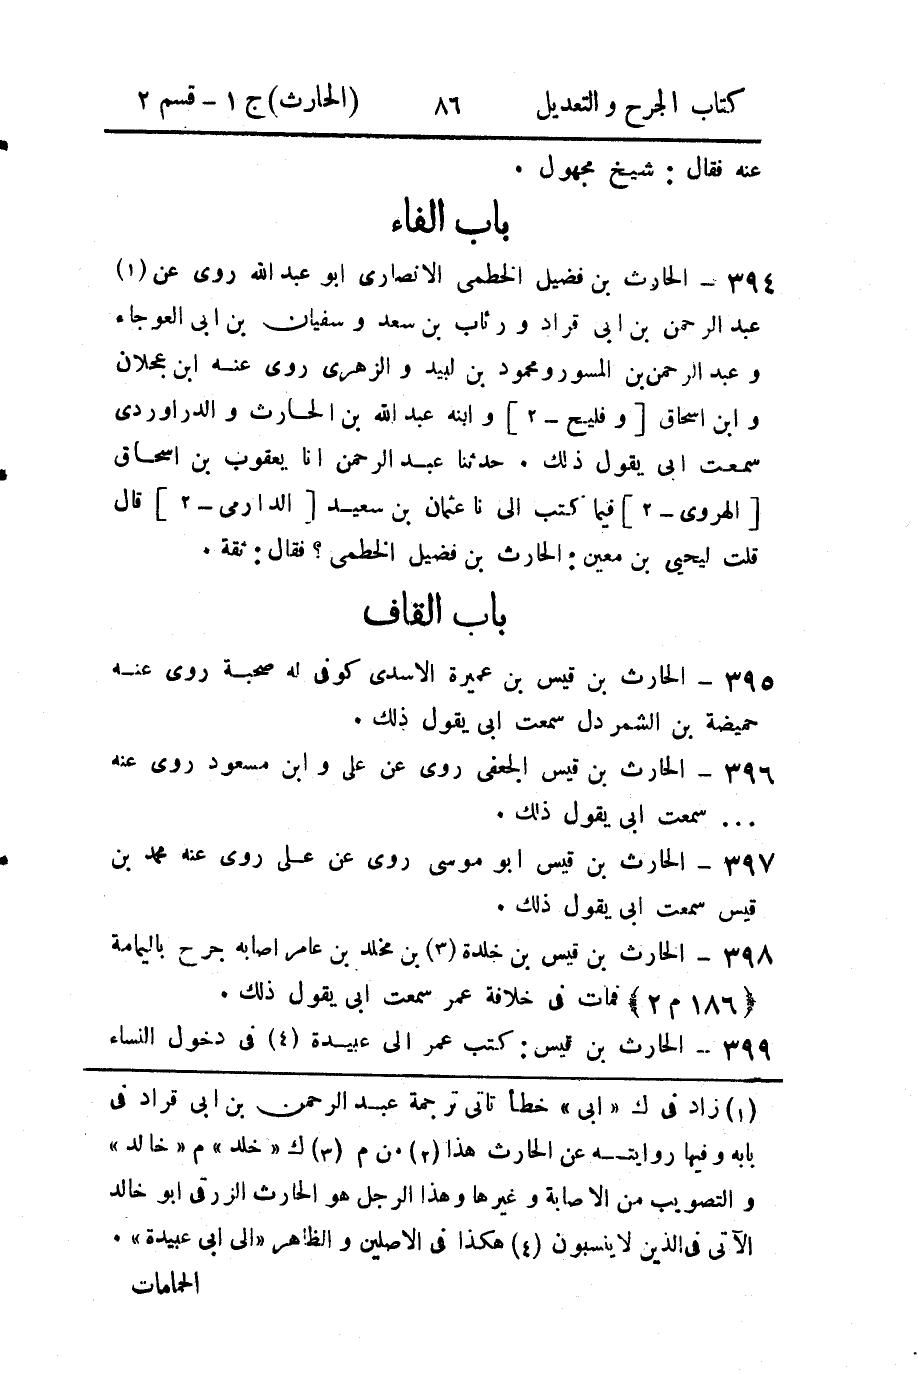 كتاب الجرح و التعديل ٨٦ (الحارث) ج ١ - قسم ٢
عنه فقال : شيخ مجهول .
باب الفاء
٣٩٤ - الحارث بن فضيل الخطمى الانصارى ابو عبد الله روى عن (١)
عبد الرحمن بن ابى قراد و رئاب بن سعد و سفيان بن ابى العوجاء
و عبد الرحمن بن المسور ومحمود بن لبيد و الزهرى روى عنه ابن عجلان
و ابن اسحاق [ و فليح - ٢ ] و ابنه عبد الله بن الحارث و الدراوردى
سمعت ابى يقول ذلك . حدثنا عبد الرحمن انا يعقوب بن اسحاق
[ الهروى - ٢ ] فيما كتب الى نا عثمان بن سعيد [ الدارمى - ٢ ] قال
قلت ليحيى بن معين : الحارث بن فضيل الخطمى ؟ فقال : ثقة .
باب القاف
٣٩٥ - الحارث بن قيس بن عميرة الاسدى كوفى له صحبة روى عنه
حميضة بن الشمر دل سمعت ابى يقول ذلك .
٣٩٦ - الحارث بن قيس الجعفى روى عن على و ابن مسعود روى عنه
... سمعت ابى يقول ذلك .
٣٩٧ - الحارث بن قيس ابو موسى روى عن على روى عنه محمد بن
قيس سمعت ابى يقول ذلك .
٣٩٨ - الحارث بن قيس بن خلدة (٣) بن مخلد بن عامر اصابه جرح باليمامة
﴿١٨٦ م ٢﴾ فمات فى خلافة عمر سمعت ابى يقول ذلك .
٣٩٩ - الحارث بن قيس : كتب عمر الى عبيدة (٤) فى دخول النساء
(١) زاد فى ك « ابى » خطأ تاتى ترجمة عبد الرحمن بن ابى قراد فى
بابه و فيها روايته عن الحارث هذا (٢) من م (٣) ك « خلد » م « خالد »
و التصويب من الاصابة و غيرها وهذا الرجل هو الحارث الزرقى ابو خالد
الآتى فى الذين لا ينسبون (٤) هكذا فى الاصلين و الظاهر « الى ابى عبيدة » .
الحمامات